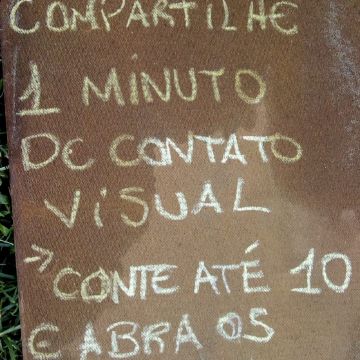 COMPARTILHE
1 MINUTO
DE CONTATO
VISUAL
→ CONTE ATÉ 10
E ABRA OS